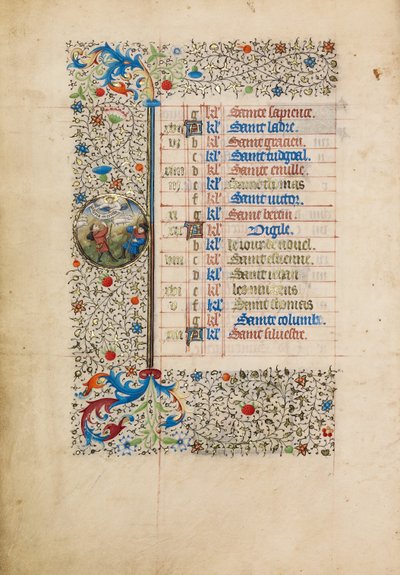 g kł Sainte sapience.
A kł Saint ladre.
vi b kł Saint gracien.
c kł Saint tudgoal.
d kł Sainte emille.
e kł Saint thomas
f kł Saint victor.
xi g kł Saint bertin.
A kł Vigile.
b kł le iour de nouel.
viii c kł Saint estienne.
d kł Saint iehan
xvi e kł les innocens
v f kł Saint thomers
g kł Sainte columbe.
A kł Saint siluestre.